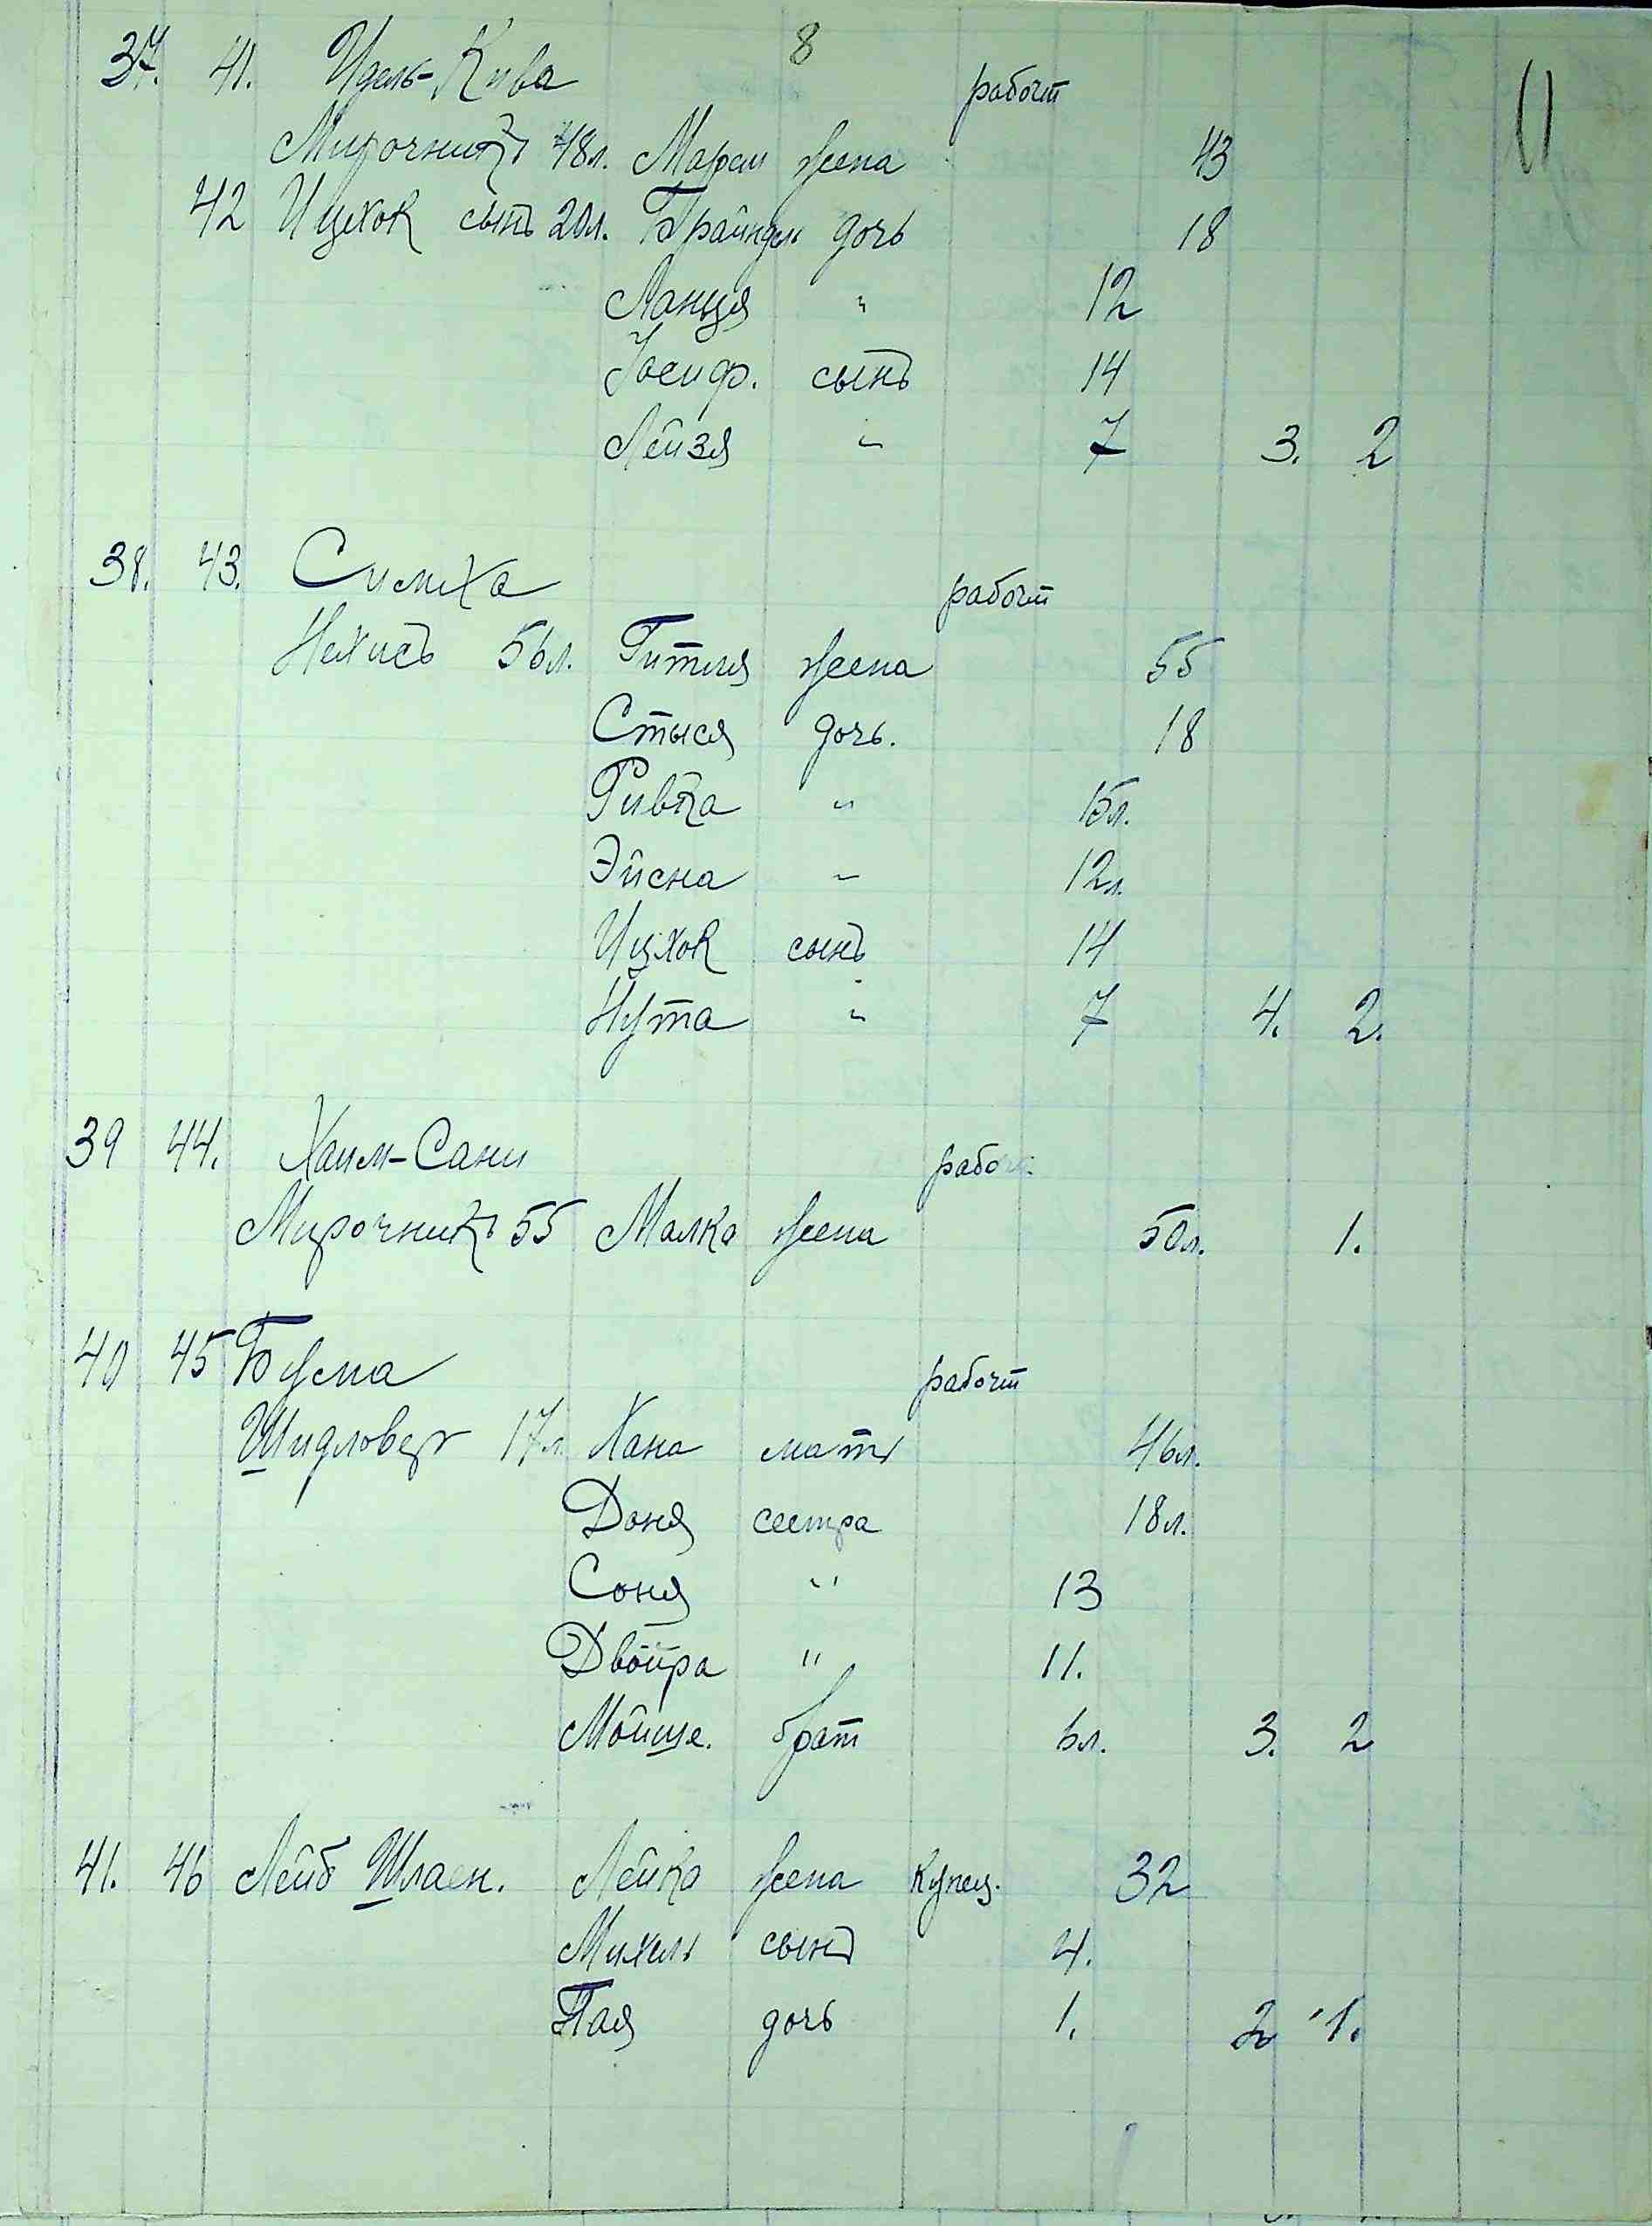 8
11
37. 41. Идель-Кива рабочт
Мирочникъ 48л. Марем жена 43
42 Ицхок сынъ 20л. Брайндль дочь 18
Ланця " 12
Іосиф. сынъ 14
Лейзя " 7 3. 2
38. 43. Симха рабочт
Нехисъ 56л. Гитля жена 55
Стыся дочь. 18
Ривка " 15л.
Эйсна " 12л.
Ицхок сынъ 14
Нута " 7 4. 2.
39 44. Хаим-Сани рабоч.
Мирочникъ 55 Малка жена 50л. 1.
40 45 Бузма рабочт
Шидловер 17л. Хана мать 46л.
Доня сестра 18л.
Соня " 13
Двойра " 11.
Мойше. брат 6л. 3. 2
41. 46 Лейб Шлаен. Лейка жена купец. 32
Михель сынъ 4.
Пая дочь 1. 2 1.